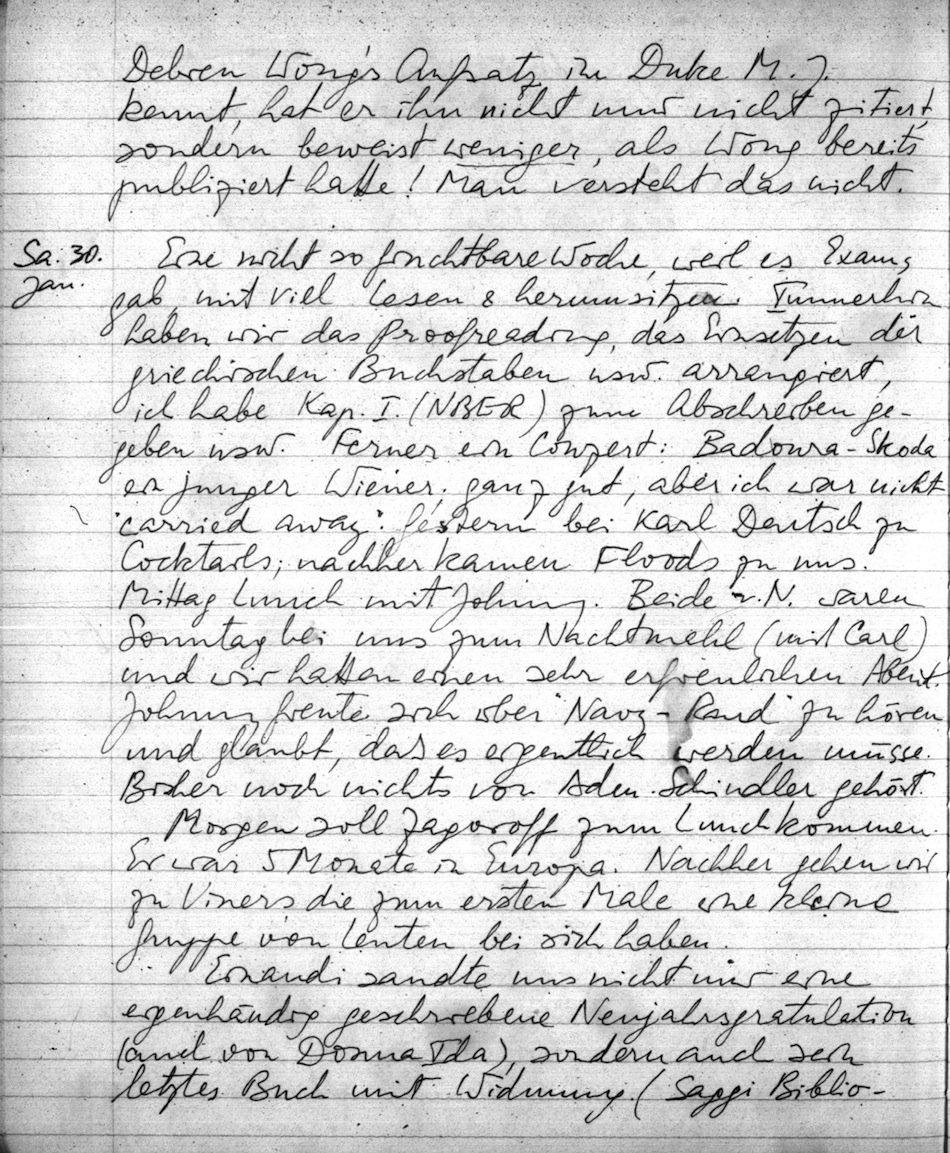 Debreu Wong's Aufsatz in Duke M. J.
kennt, hat er ihn nicht nur nicht zitiert,
sondern beweist weniger, als Wong bereits
publiziert hatte! Man versteht das nicht.
Sa. 30. Eine nicht so fruchtbare Woche, weil es Exams
Jan. gab, mit viel Lesen & herumsitzen. Immerhin
haben wir das Proofreading, das Einsetzen der
griechischen Buchstaben usw. arrangiert,
ich habe Kap. I. (NBER) zum Abschreiben ge-
geben usw. Ferner ein Conzert: Badoura-Skoda
ein junger Wiener; ganz gut, aber ich war nicht
"carried away". Gestern bei Karl Deutsch zu
Cocktails; nachher kamen Floods zu uns.
Mittag Lunch mit Johnny. Beide v. N. waren
Sonntag bei uns zum Nachtmehl (mit Carl)
und wir hatten einen sehr erfreulichen Abent.
Johnny freute sich über "Navy-Rand" zu hören
und glaubt, dass es eigentlich werden müsse.
Bisher noch nichts von Adm. Schindler gehört.
Morgen soll Zagoroff zum Lunch kommen.
Er war 5 Monate in Europa. Nachher gehen wir
zu Viners die zum ersten Male eine kleine
Gruppe von Leuten bei sich haben.
Einaudi sandte uns nicht nur eine
eigenhändig geschriebene Neujahrsgratulation
(auch von Donna Ida), sondern auch sein
letztes Buch mit Widmung. (Saggi Biblio-